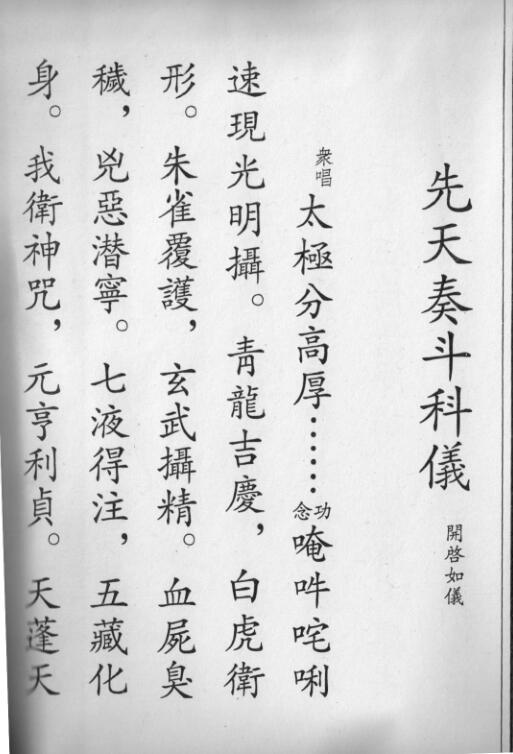 先天奏斗科儀 開啓如儀
衆唱 太極分高厚…… 功念 唵吽咤唎
速現光明攝。青龍吉慶，白虎衛
形。朱雀覆護，玄武攝精。血屍臭
穢，兇惡潛寧。七液得注，五藏化
身。我衛神咒，元亨利貞。天蓬天